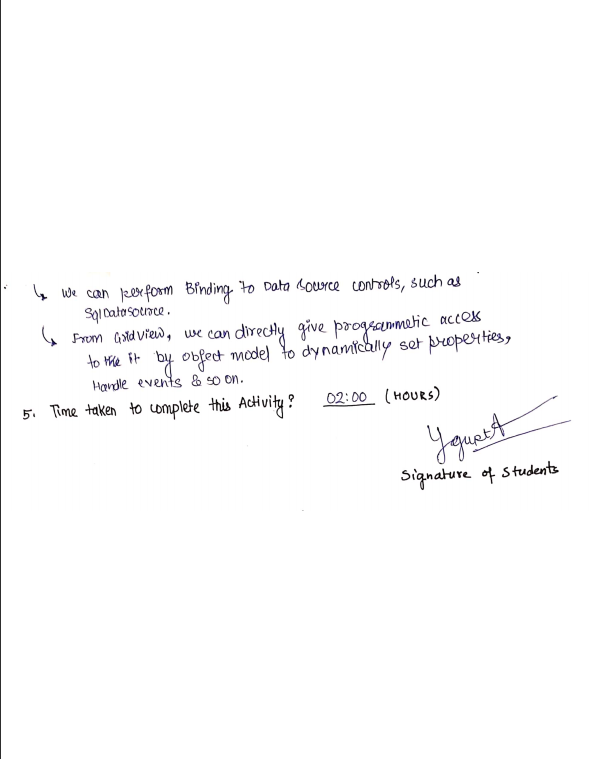 ↳ We can perform Binding to Data Source controls, such as
SqlDataSource.
↳ From GridView, we can directly give programmetic access
to the it by object model to dynamically set properties,
Handle events & so on.
5. Time taken to complete this Activity? 02:00 (HOURS)
Signature of Students